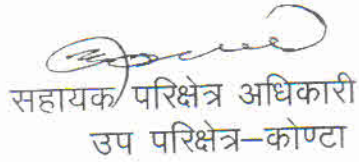 सहायक परिक्षेत्र अधिकारी
उप परिक्षेत्र–कोण्टा